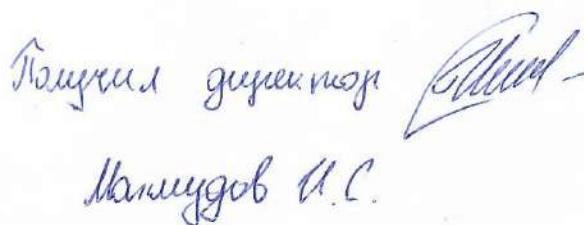 Получил директор
Махмудов И.С.